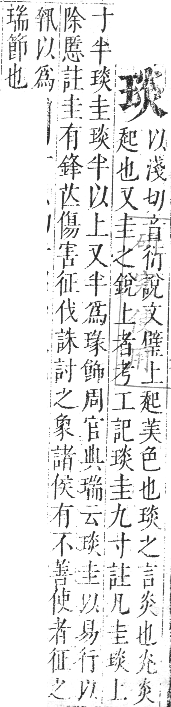 琰
以淺切音衍說文璧上起美色也琰之言炎也光炎
起也又圭之銳上者考工記琰圭九寸註凡圭琰上
寸半琰圭琰半以上又半爲瑑飾周官典瑞云琰圭以易行以
除慝註圭有鋒芒傷害征伐誅討之象諸侯有不善使者征之
執以爲
瑞節也